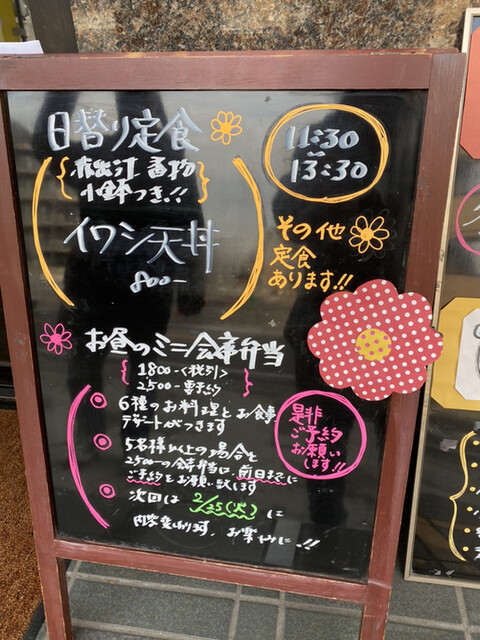 日替り定食
赤出汁 香物
小鉢つき!!
11:30
~
13:30
イワシ天丼
800-
その他
定食
あります!!
お昼のミニ会席弁当
1800-<税別>
2500-要予約
6種のお料理とお食事
デザートがつきます
5名様以上の場合と
2500-の会席弁当は、前日までに
ご予約をお願い致します
次回は 2/25(火)に
内容変わります。お楽しみに…!!
是非
ご予約
お願い
します!!